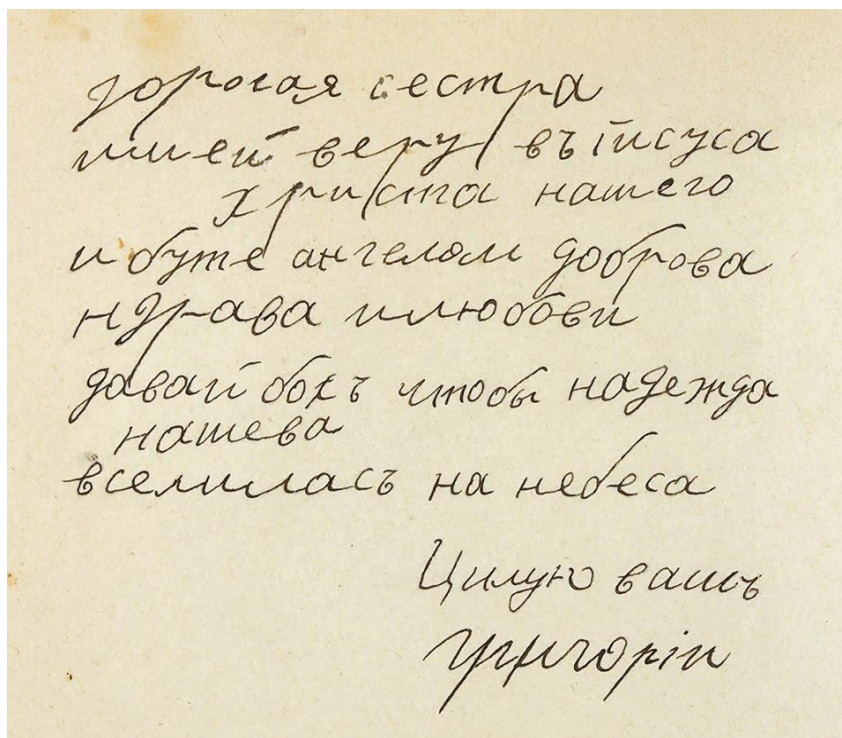 дорогая сестра
имей веру въ іисуса
христа нашего
и буте ангелом доброва
ндрава и любови
давай бохъ чтобы надежда
нашева
вселиласъ на небеса
Цилую вашъ
григоріи